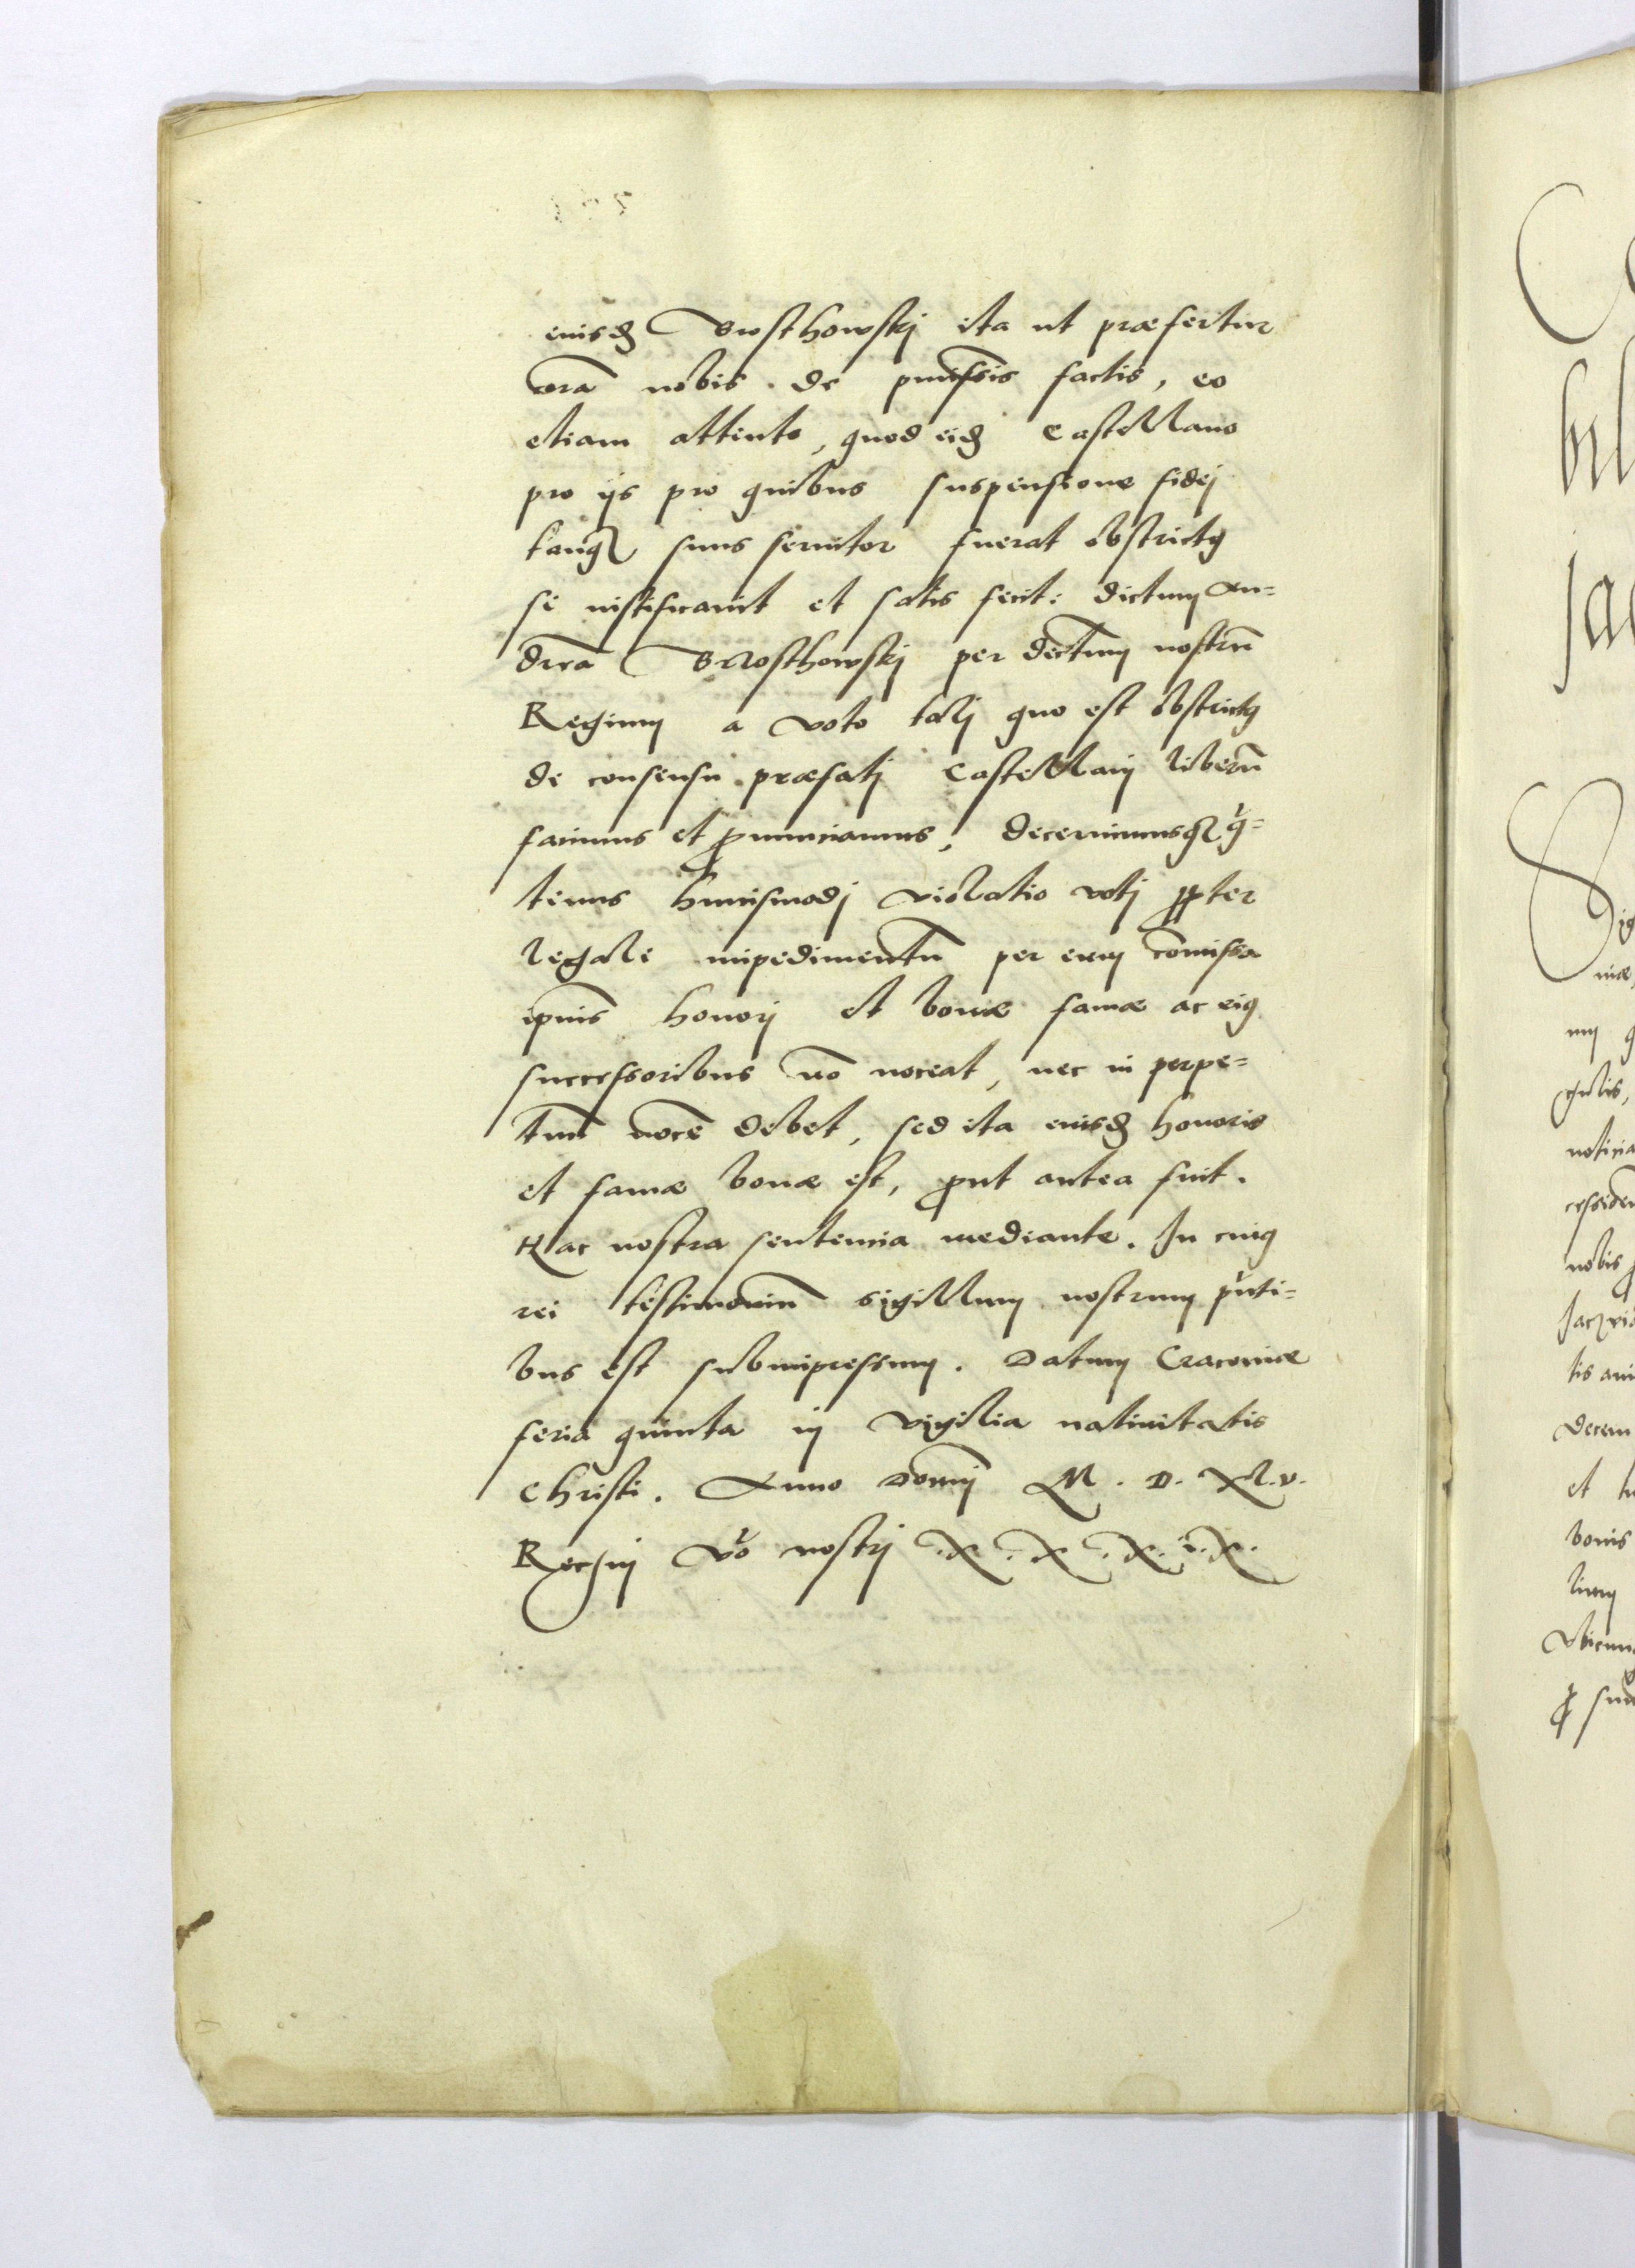 eiusd Brosthowskj ita ut præfertur
corā nobis de pmissis factis, eo
etiam attento, quod eid Castellano
pro ijs pro quibus suspensione fidej
tanq suus seruitor fuerat obstrictq
se iustificauit et satis fecit: dictum An=
dreā Brzosthowskj per dectum nostrū
Regium a voto talj quo est obstrictq
de consensu præfatj Castellanj liberū
facimus et pnunciamus, decernimusq q=
tenus huiusmodj violatio votj ppter
legale impedimentū per eum cōmissa
ipius honorj et bonæ famæ ac eiq
successoribus nō noceat, nec in perpe=
tuū nocē debet, sed ita eiusd honoris
et famæ bonæ est, put antea fuit.
Hac nostra sententia mediante. In cuiq
rei testimoniū sigillum nostrum pnti=
bus est subimpressum. Datum Cracoviæ
feria quinta in vigilia natiuitatis
Christi. Anno Domj M. D. XL.v.
Regnj vo nostrj .X.X.X.i.X.
C
bil
jac
Sig
niæ,
um q
gulis,
noticia
cessiden
nobis p
Jaczvid
tis ani
decem
et h
bonis
linum
vbicun
p sua